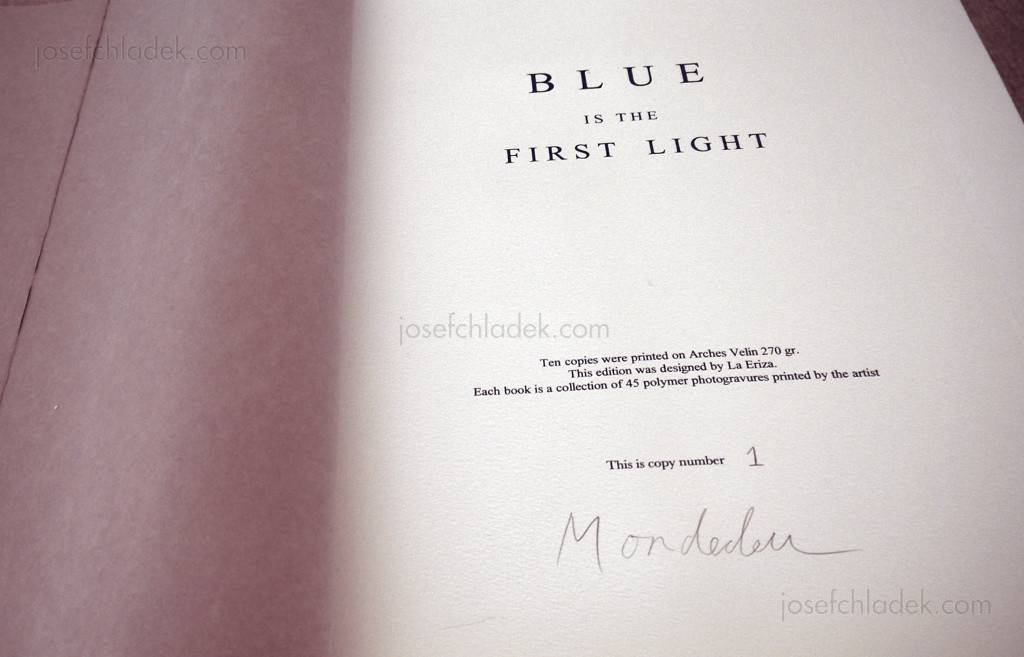 josefchladek.com
BLUE
IS THE
FIRST LIGHT
josefchladek.com
Ten copies were printed on Arches Velin 270 gr.
This edition was designed by La Eriza.
Each book is a collection of 45 polymer photogravures printed by the artist
This is copy number 1
josefchladek.com